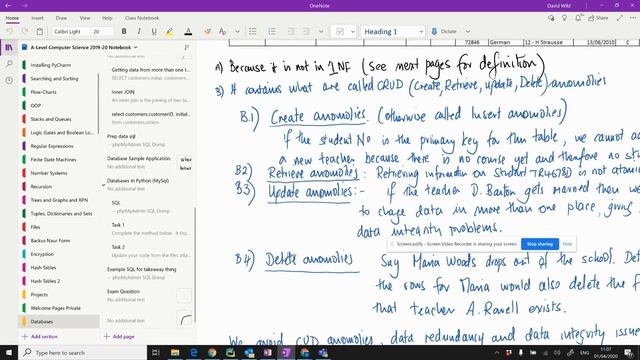 OneNote
David Wild
Home Insert Draw View Help
Calibri Light 20 Heading 1
A-Level Computer Science 2019-20 Notebook
Installing PyCharm
Searching and Sorting
Flow-Charts
OOP
Stacks and Queues
Logic Gates and Boolean Lo
Regular Expressions
Finite State Machines
Number Systems
Recursion
Trees and Graphs and RPN
Tuples, Dictionaries and Sets
Files
Backus Naur Form
Encryption
Hash Tables
Hash Tables 2
Projects
Welcome Pages Private
Databases
Add section
No additional text
Getting data from more one t
SELECT customers.initial, customer
Inner JOIN
An inner join is the joining of two ta
select customers.customerID, initial
from customers,orders
Prep data sql
-- phpMyAdmin SQL Dump
Database Sample Application
No additional text
Databases in Python (MySql)
No additional text
SQL
-- phpMyAdmin SQL Dump
Task 1
Complete the method below. It sho
Task 2
Update your code from the files atta
Example SQL for takeaway thing
-- phpMyAdmin SQL Dump
Exam Question
No additional text
No additional text
Add page
72846 German 12 - H Strausse 13/06/2010
A) Because it is not in 1NF (see next pages for definition)
B) It contains what are called CRUD (Create, Retrieve, Update, Delete) anomolies
B.1) Create anomolies. (otherwise called Insert anomolies)
if the student Nº is the primary key for this table, we cannot a
a new teacher because there is no course yet and therefore no st
B2) Retrieve anomolies: Retrieving information on Student is not atomic
B3) Update anomolies:- if the teacher D. Barton gets married then we
to chage data in more than one place, giving
data integrity problems.
Screencastify - Screen Video Recorder is sharing your screen. Stop sharing Hide
B4) Delete anomolies Say Maria Woods drops out of the school. Del
the rows for Maria would also delete the f
that teacher A. Ravell exists.
We avoid CUD anomolies, data redundancy and data integrity issue
Type here to search
ENG
11:07
01/04/2020